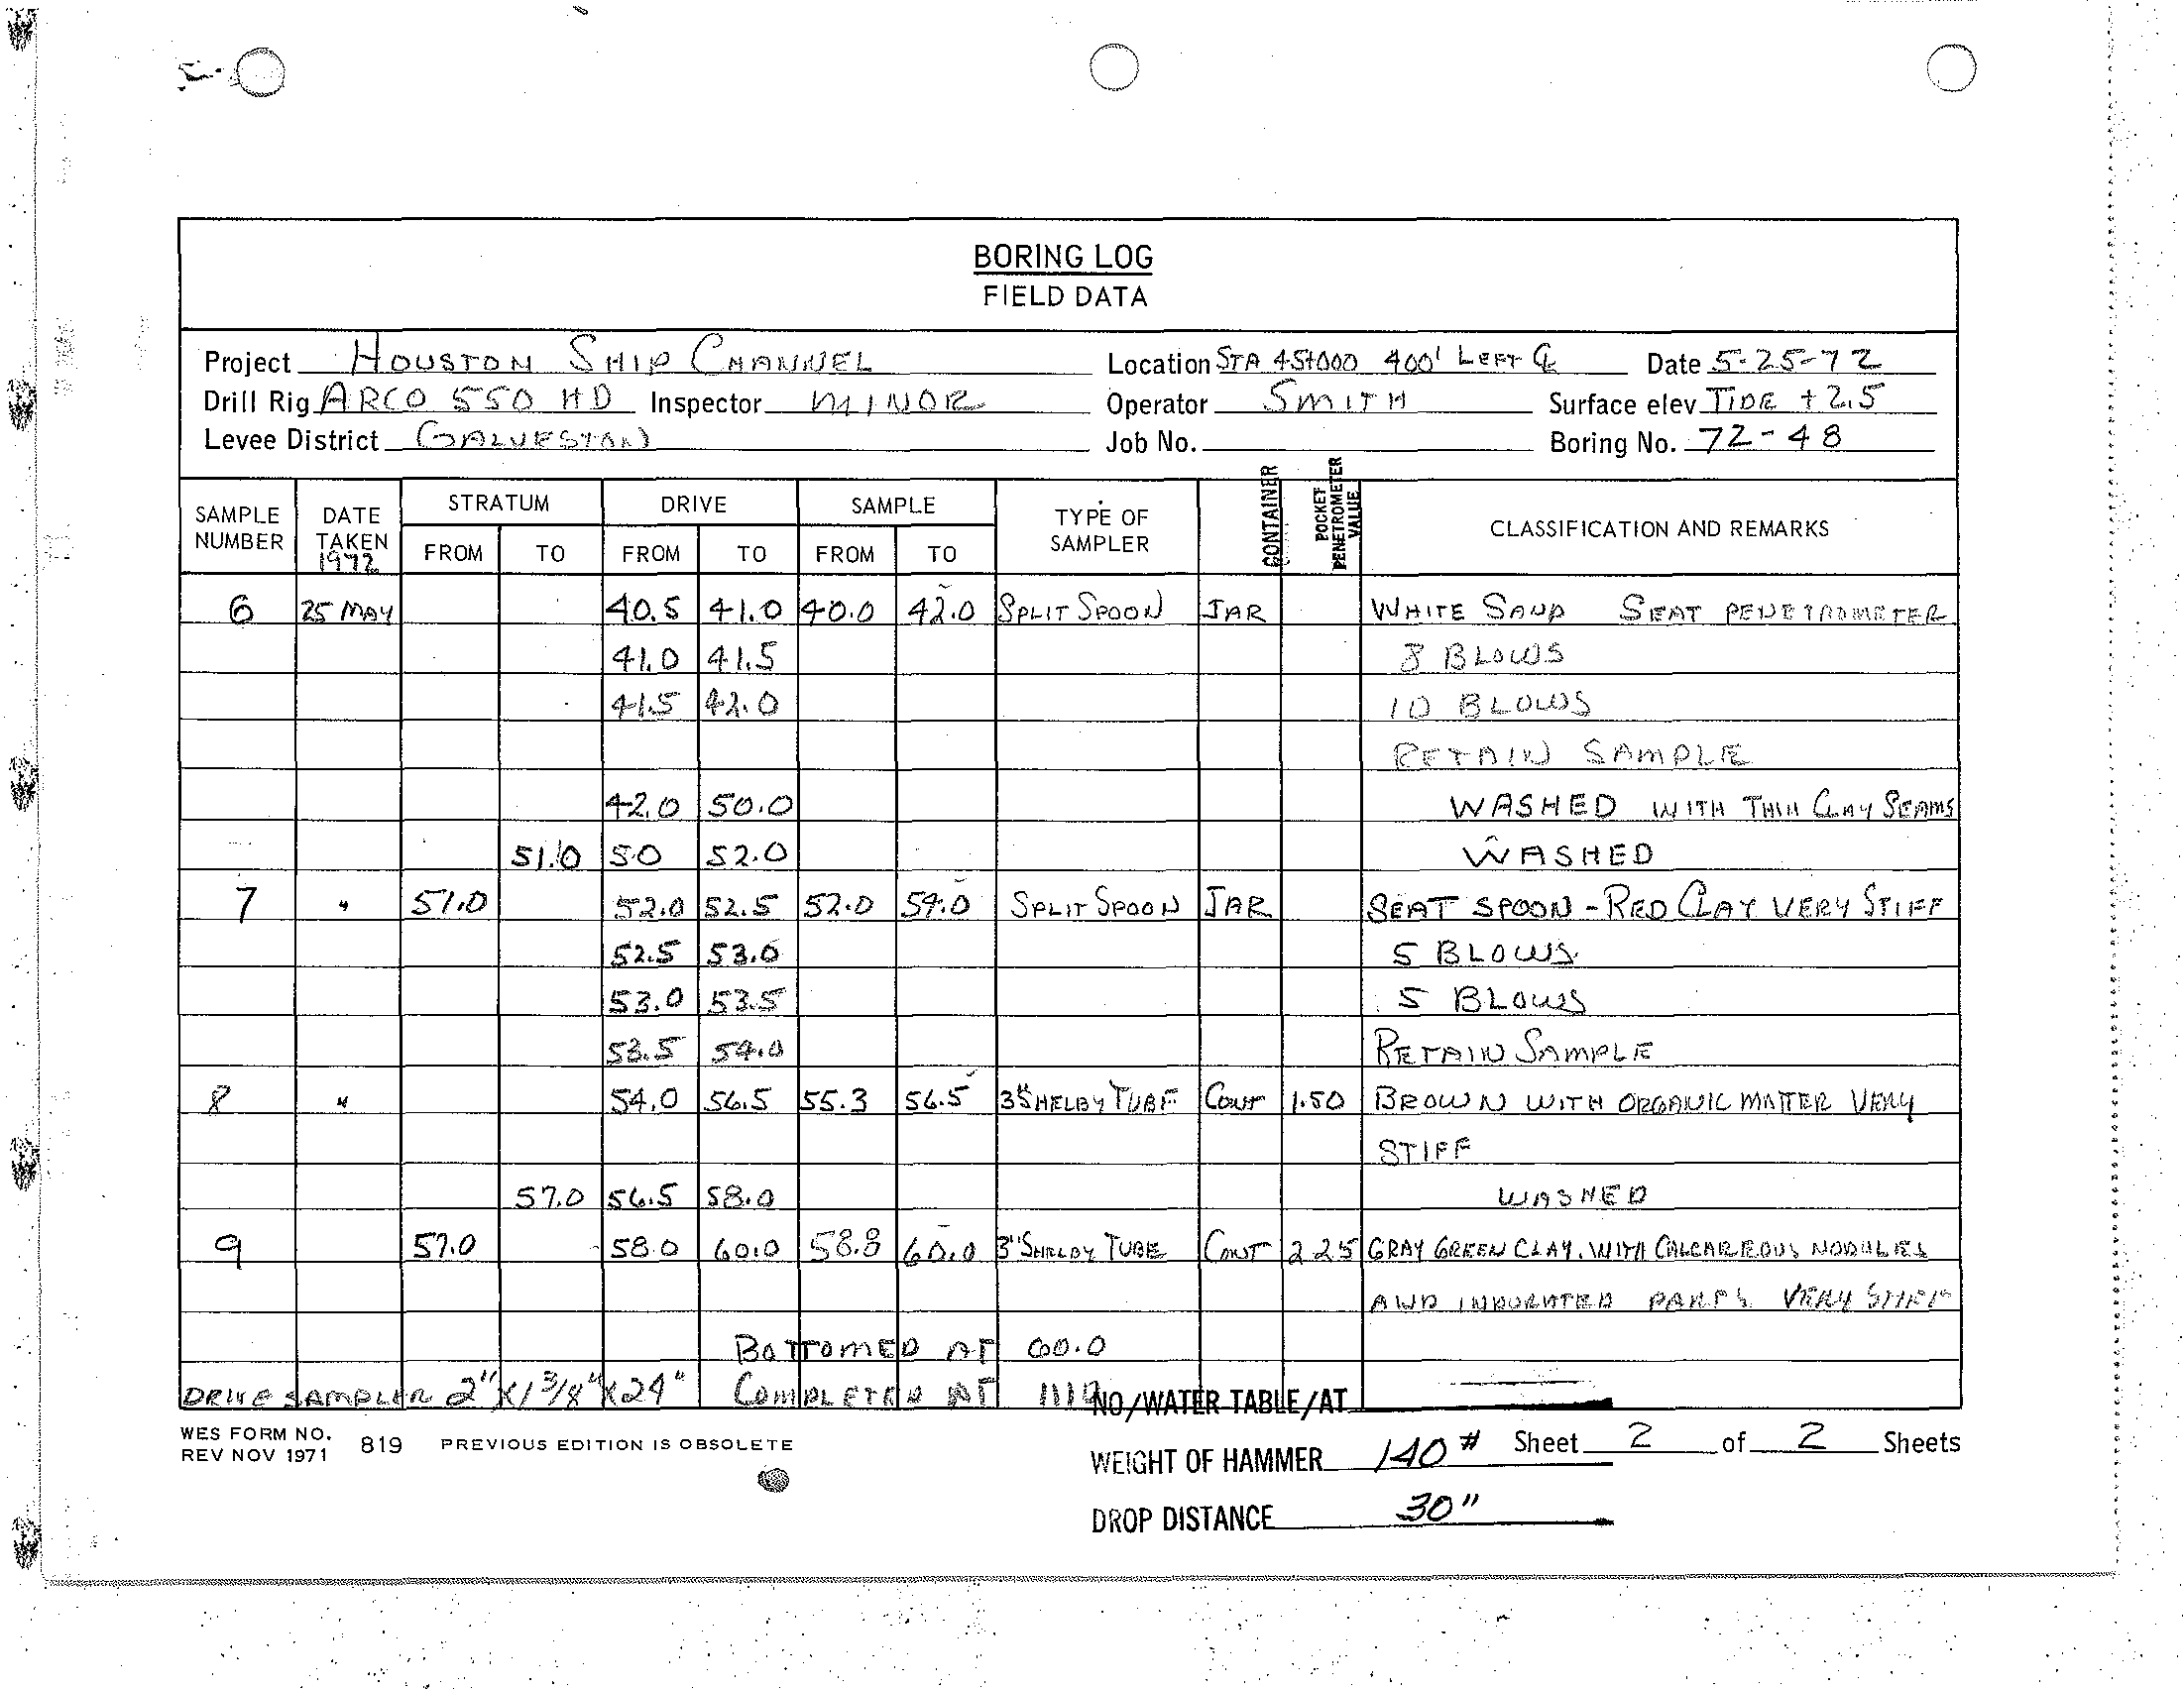 BORING LOG
FIELD DATA
Project HOUSTON SHIP CHANNEL Location STA 45+000 400' LEFT ℄ Date 5-25-72
Drill Rig ARCO 550 HD Inspector MINOR Operator SMITH Surface elev TIDE +2.5
Levee District GALVESTON Job No. Boring No. 72-48
SAMPLE NUMBER DATE TAKEN 1972 STRATUM FROM TO DRIVE FROM TO SAMPLE FROM TO TYPE OF SAMPLER CONTAINER POCKET PENETROMETER VALUE CLASSIFICATION AND REMARKS
6 25 MAY 40.5 41.0 40.0 42.0 SPLIT SPOON JAR WHITE SAND SEAT PENETROMETER
41.0 41.5 8 BLOWS
41.5 42.0 10 BLOWS
RETAIN SAMPLE
42.0 50.0 WASHED WITH THIN CLAY SEAMS
51.0 50 52.0 WASHED
7 " 51.0 52.0 52.5 52.0 54.0 SPLIT SPOON JAR SEAT SPOON - RED CLAY VERY STIFF
52.5 53.0 5 BLOWS
53.0 53.5 5 BLOWS
53.5 54.0 RETAIN SAMPLE
8 " 54.0 56.5 55.3 56.5 3" SHELBY TUBE CONT 1.50 BROWN WITH ORGANIC MATTER VERY
STIFF
57.0 56.5 58.0 WASHED
9 57.0 58.0 60.0 58.8 60.0 3" SHELBY TUBE CONT 2.25 GRAY GREEN CLAY, WITH CALCAREOUS NODULES
AND INDURATED PARTS VERY STIFF
BOTTOMED AT 60.0
DRIVE SAMPLER 2" X 1 3/8" X 24" COMPLETED AT NO/WATER TABLE/AT
WES FORM NO. 819 PREVIOUS EDITION IS OBSOLETE
REV NOV 1971
WEIGHT OF HAMMER 140# Sheet 2 of 2 Sheets
DROP DISTANCE 30"